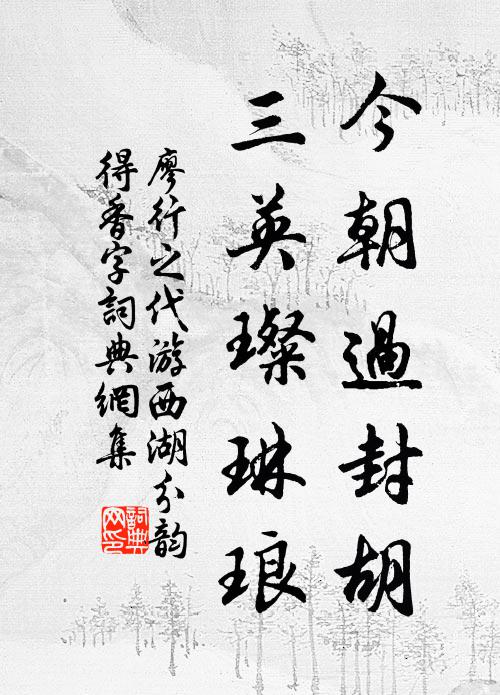 今朝過封胡
三英璨琳琅
廖行之代游西湖分韵
得香字詞典網集
詞典网印